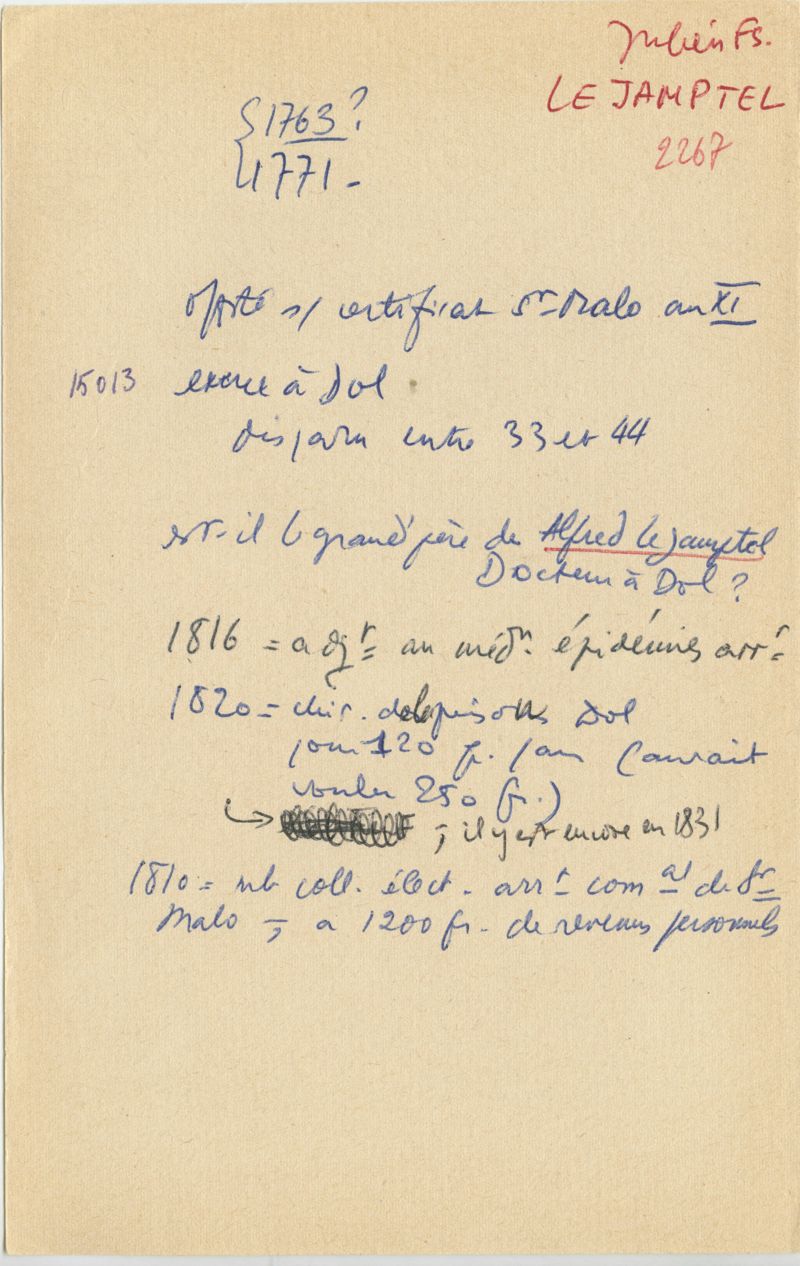 Julien Fs.
LE JAMPTEL
2267
1763 ?
1771 -
s/ certificat St-Malo an XI
15013 exerce à Dol
disparu entre 33 et 44
est-il le grand'père de Alfred le Jamptel
Docteur à Dol ?
1816 = adjt au médn épidémies arrt
1820 = chir. de la prisons Dol
pour 120 f. / an (aurait
voulu 250 fr.)
; il y est encore en 1831
1810 = mb coll. élect. arrt comal de St
Malo ; a 1200 fr. de revenus personnels